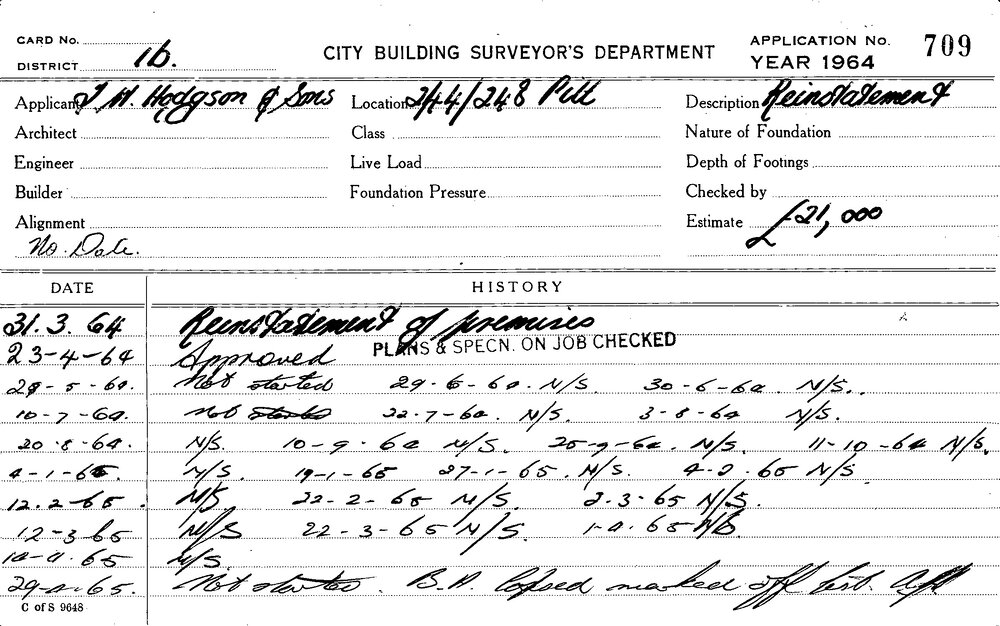 CARD No.
DISTRICT 1b.
CITY BUILDING SURVEYOR'S DEPARTMENT
APPLICATION No. 709
YEAR 1964
Applicant J H. Hodgson & Sons Location 244/248 Pitt Description Reinstatement
Architect Class Nature of Foundation
Engineer Live Load Depth of Footings
Builder Foundation Pressure Checked by
Alignment Estimate £21,000
No. Date.
DATE HISTORY
31.3.64 Reinstatement of premises
23-4-64 Approved PLANS & SPECN. ON JOB CHECKED
-5-64. Not started 29-6-64. N/S. 30-6-64. N/S.
10-7-64. Not started 22.7-64. N/S. 3-8-64 N/S.
20.8-64. N/S. 10-9-64 N/S. 25-9-64. N/S. 11-10-64 N/S.
4-1-65. N/S. 19-1-65 27-1-65. N/S. 4-2.65 N/S
12.2-65. N/S 22-2-65 N/S. 2.3-65 N/S.
12-3 65 N/S 22-3-65 N/S. 1-4.65 N/S
14-4.65 N/S.
29-4-65. Not started. B.A. lapsed marked off list.
C of S 9648